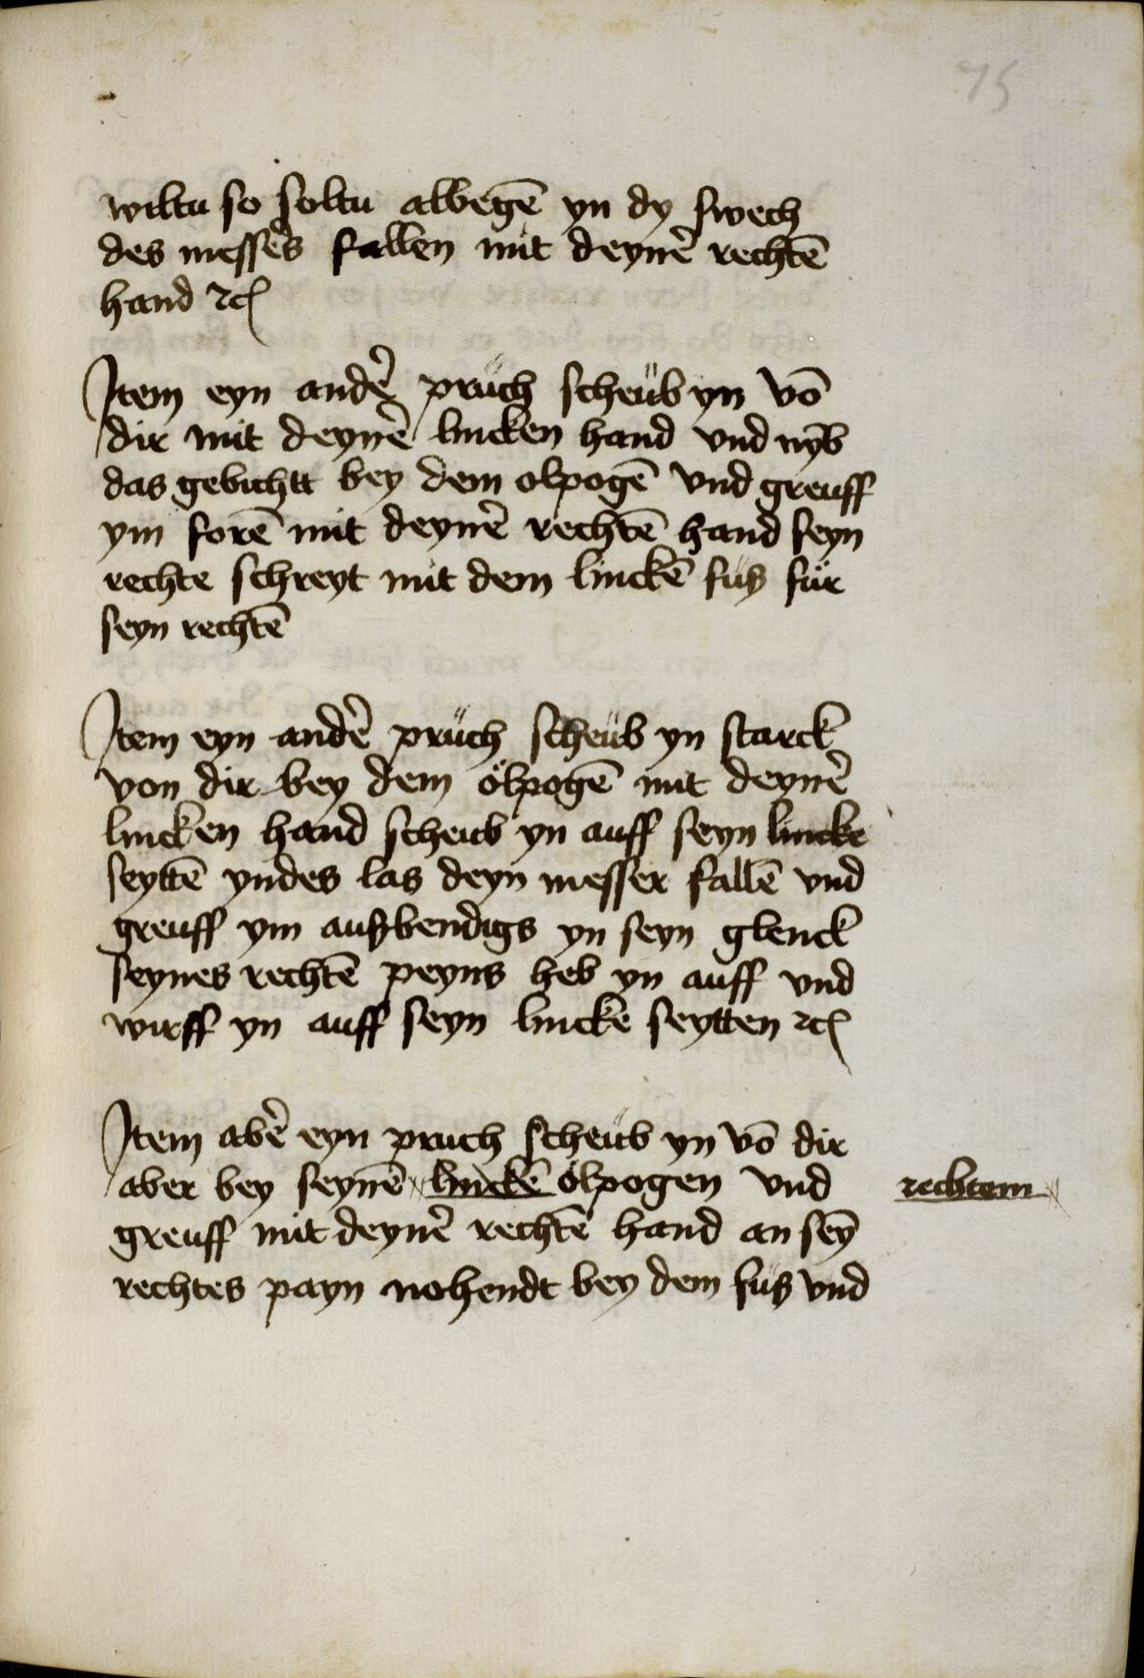 75
wiltu so soltu albegē yn dy swech
des messers fallen mit deynē rechtē
hand ⁊cͣ
Item eyn andē pruch scheub yn vō
dir mit deynē lincken hand vnd nyb
das gebichtt bey dem olpogē vnd greuff
ym forē mit deynē rechtē hand seyn
rechte schreyt mit dem linckē fuß für
seyn rechtē
Item eyn andē prüch scheüb yn starck
von dir bey dem ölpogē mit deynē
lincken hand scheub yn auff seyn lincke
seyttē yndes las deyn messer fallē vnd
greuff ym außbendigs yn seyn glenck
seynes rechtē peyns heb yn auff vnd
wirff yn auff seyn lincke seytten ⁊cͣ
Item abē eyn pruch scheüb yn vō dir
aber bey seynē linckē ölpogen vnd rechtem
greuff mit deynē rechtē hand an sey̅
rechtes payn nohendt bey dem fuß vnd